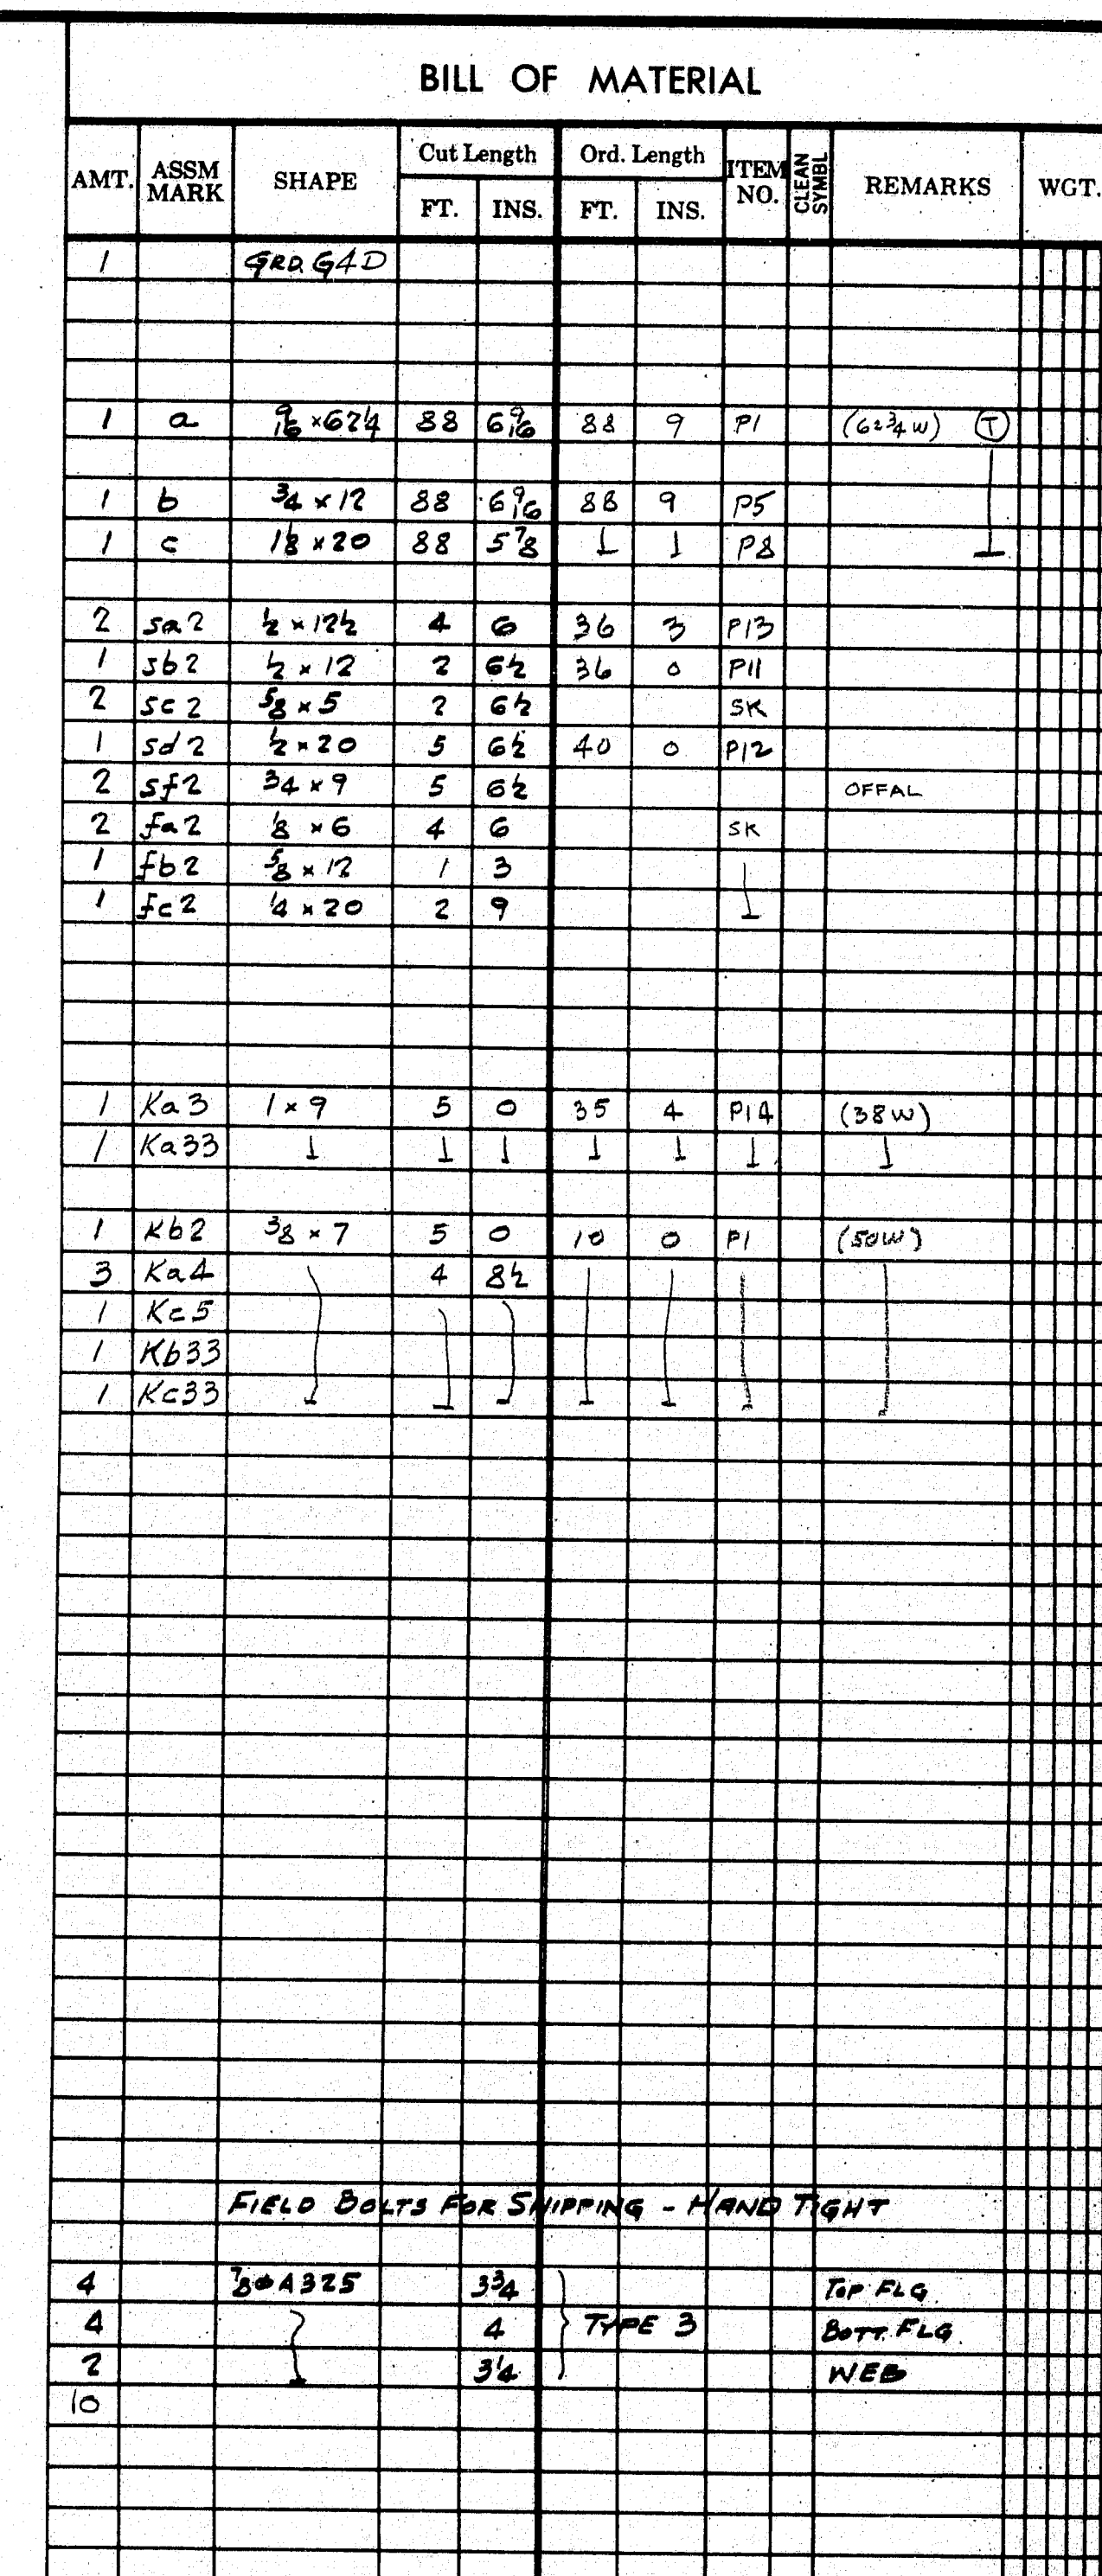 BILL OF MATERIAL
AMT. ASSM MARK SHAPE Cut Length FT. INS. Ord. Length FT. INS. ITEM NO. CLEAN SYMBL REMARKS WGT.
1 GRD. G4D
1 a 9/16 × 62 1/4 88 6 9/16 88 9 P1 (62 3/4 W) T
1 b 3/4 × 12 88 6 9/16 88 9 P5
1 c 1 1/8 × 20 88 5 7/8 P8
2 sa2 1/2 × 12 1/2 4 6 36 3 P13
1 sb2 1/2 × 12 2 6 1/2 36 0 P11
2 sc2 5/8 × 5 2 6 1/2 SK
1 sd2 1/2 × 20 5 6 1/2 40 0 P12
2 sf2 3/4 × 9 5 6 1/2 OFFAL
2 fa2 1/8 × 6 4 6 SK
1 fb2 5/8 × 12 1 3
1 fc2 1/4 × 20 2 9
1 Ka3 1 × 9 5 0 35 4 P14 (38W)
1 Ka33
1 Kb2 3/8 × 7 5 0 10 0 P1 (50W)
3 Ka4 4 8 1/2
1 Kc5
1 Kb33
1 Kc33
FIELD BOLTS FOR SHIPPING - HAND TIGHT
4 7/8 ø A325 3 3/4 TOP FLG.
4 4 TYPE 3 BOTT. FLG.
2 3 1/4 WEB
10